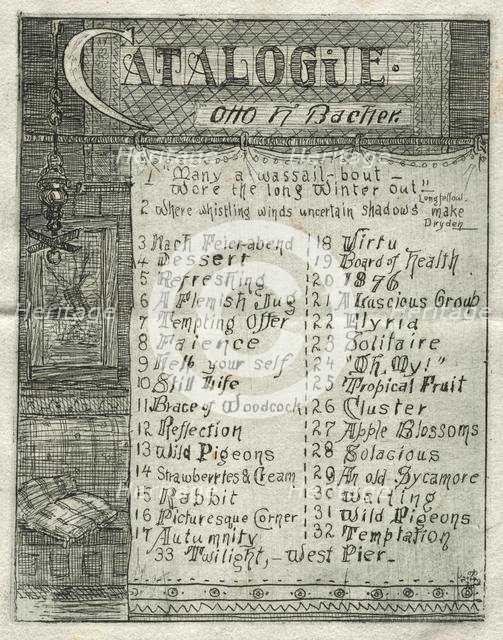 CATALOGUE.
Otto H Bacher.
1 "Many a wassail-bout –
Wore the long Winter out"
Longfellow.
2 Where whistling winds uncertain shadows make
Dryden
3 Nach Feier-abend
4 Dessert
5 Refreshing
6 A Flemish Jug
7 Tempting Offer
8 Faience
9 Help your self
10 Still Life
11 Brace of Woodcock
12 Reflection
13 Wild Pigeons
14 Strawberrtes & Cream
15 Rabbit
16 Picturesque Corner
17 Autumnity
18 Virtu
19 Board of Health
20 1876
21 A Luscious Group
22 Elyria
23 Solitaire
24 "Oh, My!"
25 Tropical Fruit
26 Cluster
27 Apple Blossoms
28 Solacious
29 An old Sycamore
30 Waiting
31 Wild Pigeons
32 Temptation
33 Twilight, – West Pier.
Heritage